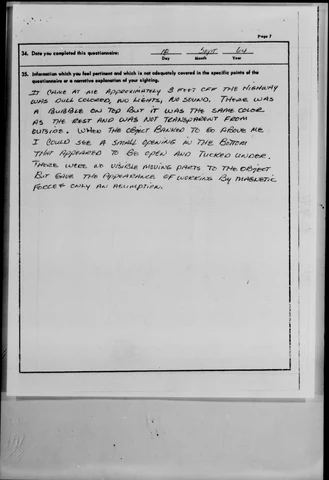 Page 7
34. Date you completed this questionnaire: 18 Sept 64
Day Month Year
35. Information which you feel pertinent and which is not adequately covered in the specific points of the
questionnaire or a narrative explanation of your sighting.
IT CAME AT ME APPROXIMATELY 8 FEET OFF THE HIGHWAY
WAS DULL COLORED, NO LIGHTS, NO SOUND. THERE WAS
A BUBBLE ON TOP BUT IT WAS THE SAME COLOR
AS THE REST AND WAS NOT TRANSPARENT FROM
OUTSIDE. WHEN THE OBJECT BANKED TO GO ABOVE ME
I COULD SEE A SMALL OPENING IN THE BOTTOM
THAT APPEARED TO BE OPEN AND TUCKED UNDER.
THERE WERE NO VISIBLE MOVING PARTS TO THE OBJECT
BUT GAVE THE APPEARANCE OF WORKING BY MAGNETIC
FORCE & ONLY AN ASUMPTION.